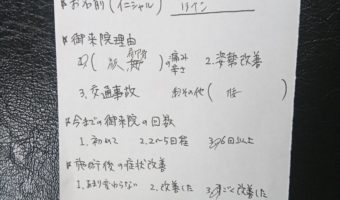 *お名前(イニシャル)
*御来院理由
の痛み
辛さ
2.姿勢改善
3.交通事故
その他(
*今までの御来院の回数
1.初めて 2.2~5回程 3.6回以上
*施術後の症状改善
1.あまり変わらない 2.改善した 3.すごく改善した